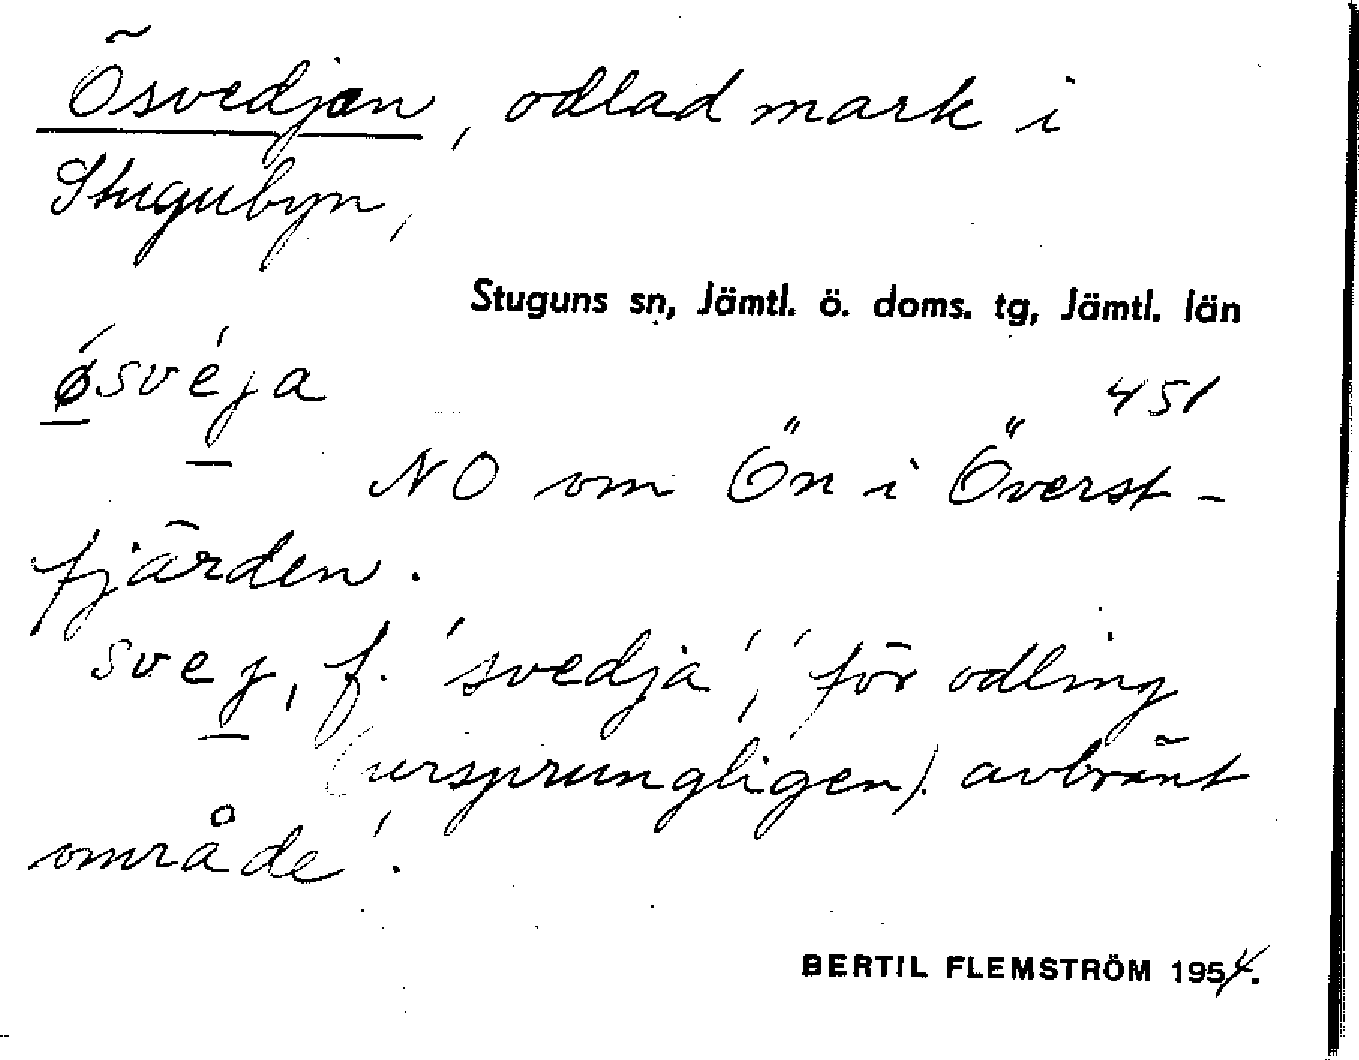 Ösvedjan, odlad mark i
Stugubyn,
Stuguns sn, Jämtl. ö. doms. tg, Jämtl. län
ǿsvéja
451
NO om Ön i Överst-
fjärden.
svej, f. 'svedja', 'för odling
(ursprungligen) avbränt
område'.
BERTIL FLEMSTRÖM 1954.